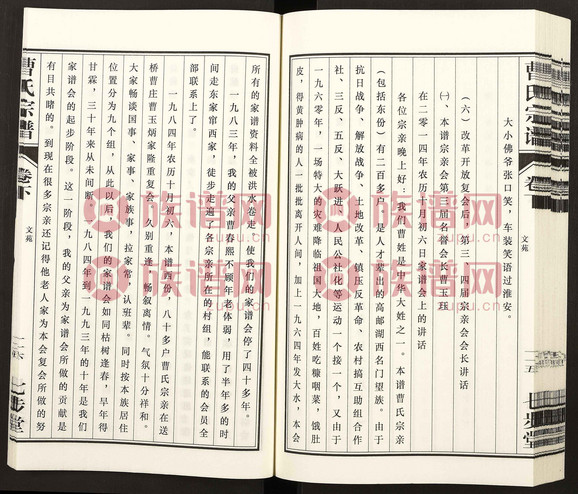 曹氏宗谱
卷
文苑
一二五
七步堂
大小佛爷张口笑，车装笑语过淮安。
（六）改革开放复会后，第三、四届宗亲会会长讲话
㈠、本谱宗亲会第三届名誉会长曹玉珏
在二〇一四年农历十月初六日家谱会上的讲话
各位宗亲晚上好：我们曹姓是中华大姓之一。本谱曹氏宗亲
（包括东份）有二百多户，是人才辈出的高邮湖西名门望族。由于
抗日战争、解放战争、土地改革、镇压反革命、农村搞互助组合作
社、三反、五反、大跃进、人民公社化等运动一个接一个，又由于
一九六零年，一场特大的灾难降临祖国大地，百姓吃糠咽菜，饿肚
皮，得黄肿病的人一批批离开人间，加上一九六四年发大水，本会
所有的家谱资料全被洪水卷走，使我们的家谱会停了四十多年。
一九八三年，我的父亲曹春熙不顾年老体弱，用了半年多的时
间走东家帘西家，徒步走遍了各宗亲所在的村组，能联系的会员全
部联系上了。
一九八四年农历十月初六，本谱西份，八十多户曹氏宗亲在送
桥曹庄曹玉炳家隆重复会，久别重逢，畅叙离情。气氛十分祥和。
大家畅谈国事、家事、家族事，拉家常，认班辈。同时按本族居住
位置分为九个组，从此以后，我们的家谱会如同枯树逢春，早年得
甘霖，三十年来从未间断。一九八四年到一九九三年的十年是我们
家谱会的起步阶段。这一阶段，我的父亲为家谱会所做的贡献是
有目共睹的。到现在很多宗亲还记得他老人家为本会复会所做的努
曹氏宗谱
卷下
文苑
一二六
七步堂
族谱网
zupu.cn
族谱网
zupu.cn
族谱网
zupu.cn
族谱网
zupu.cn